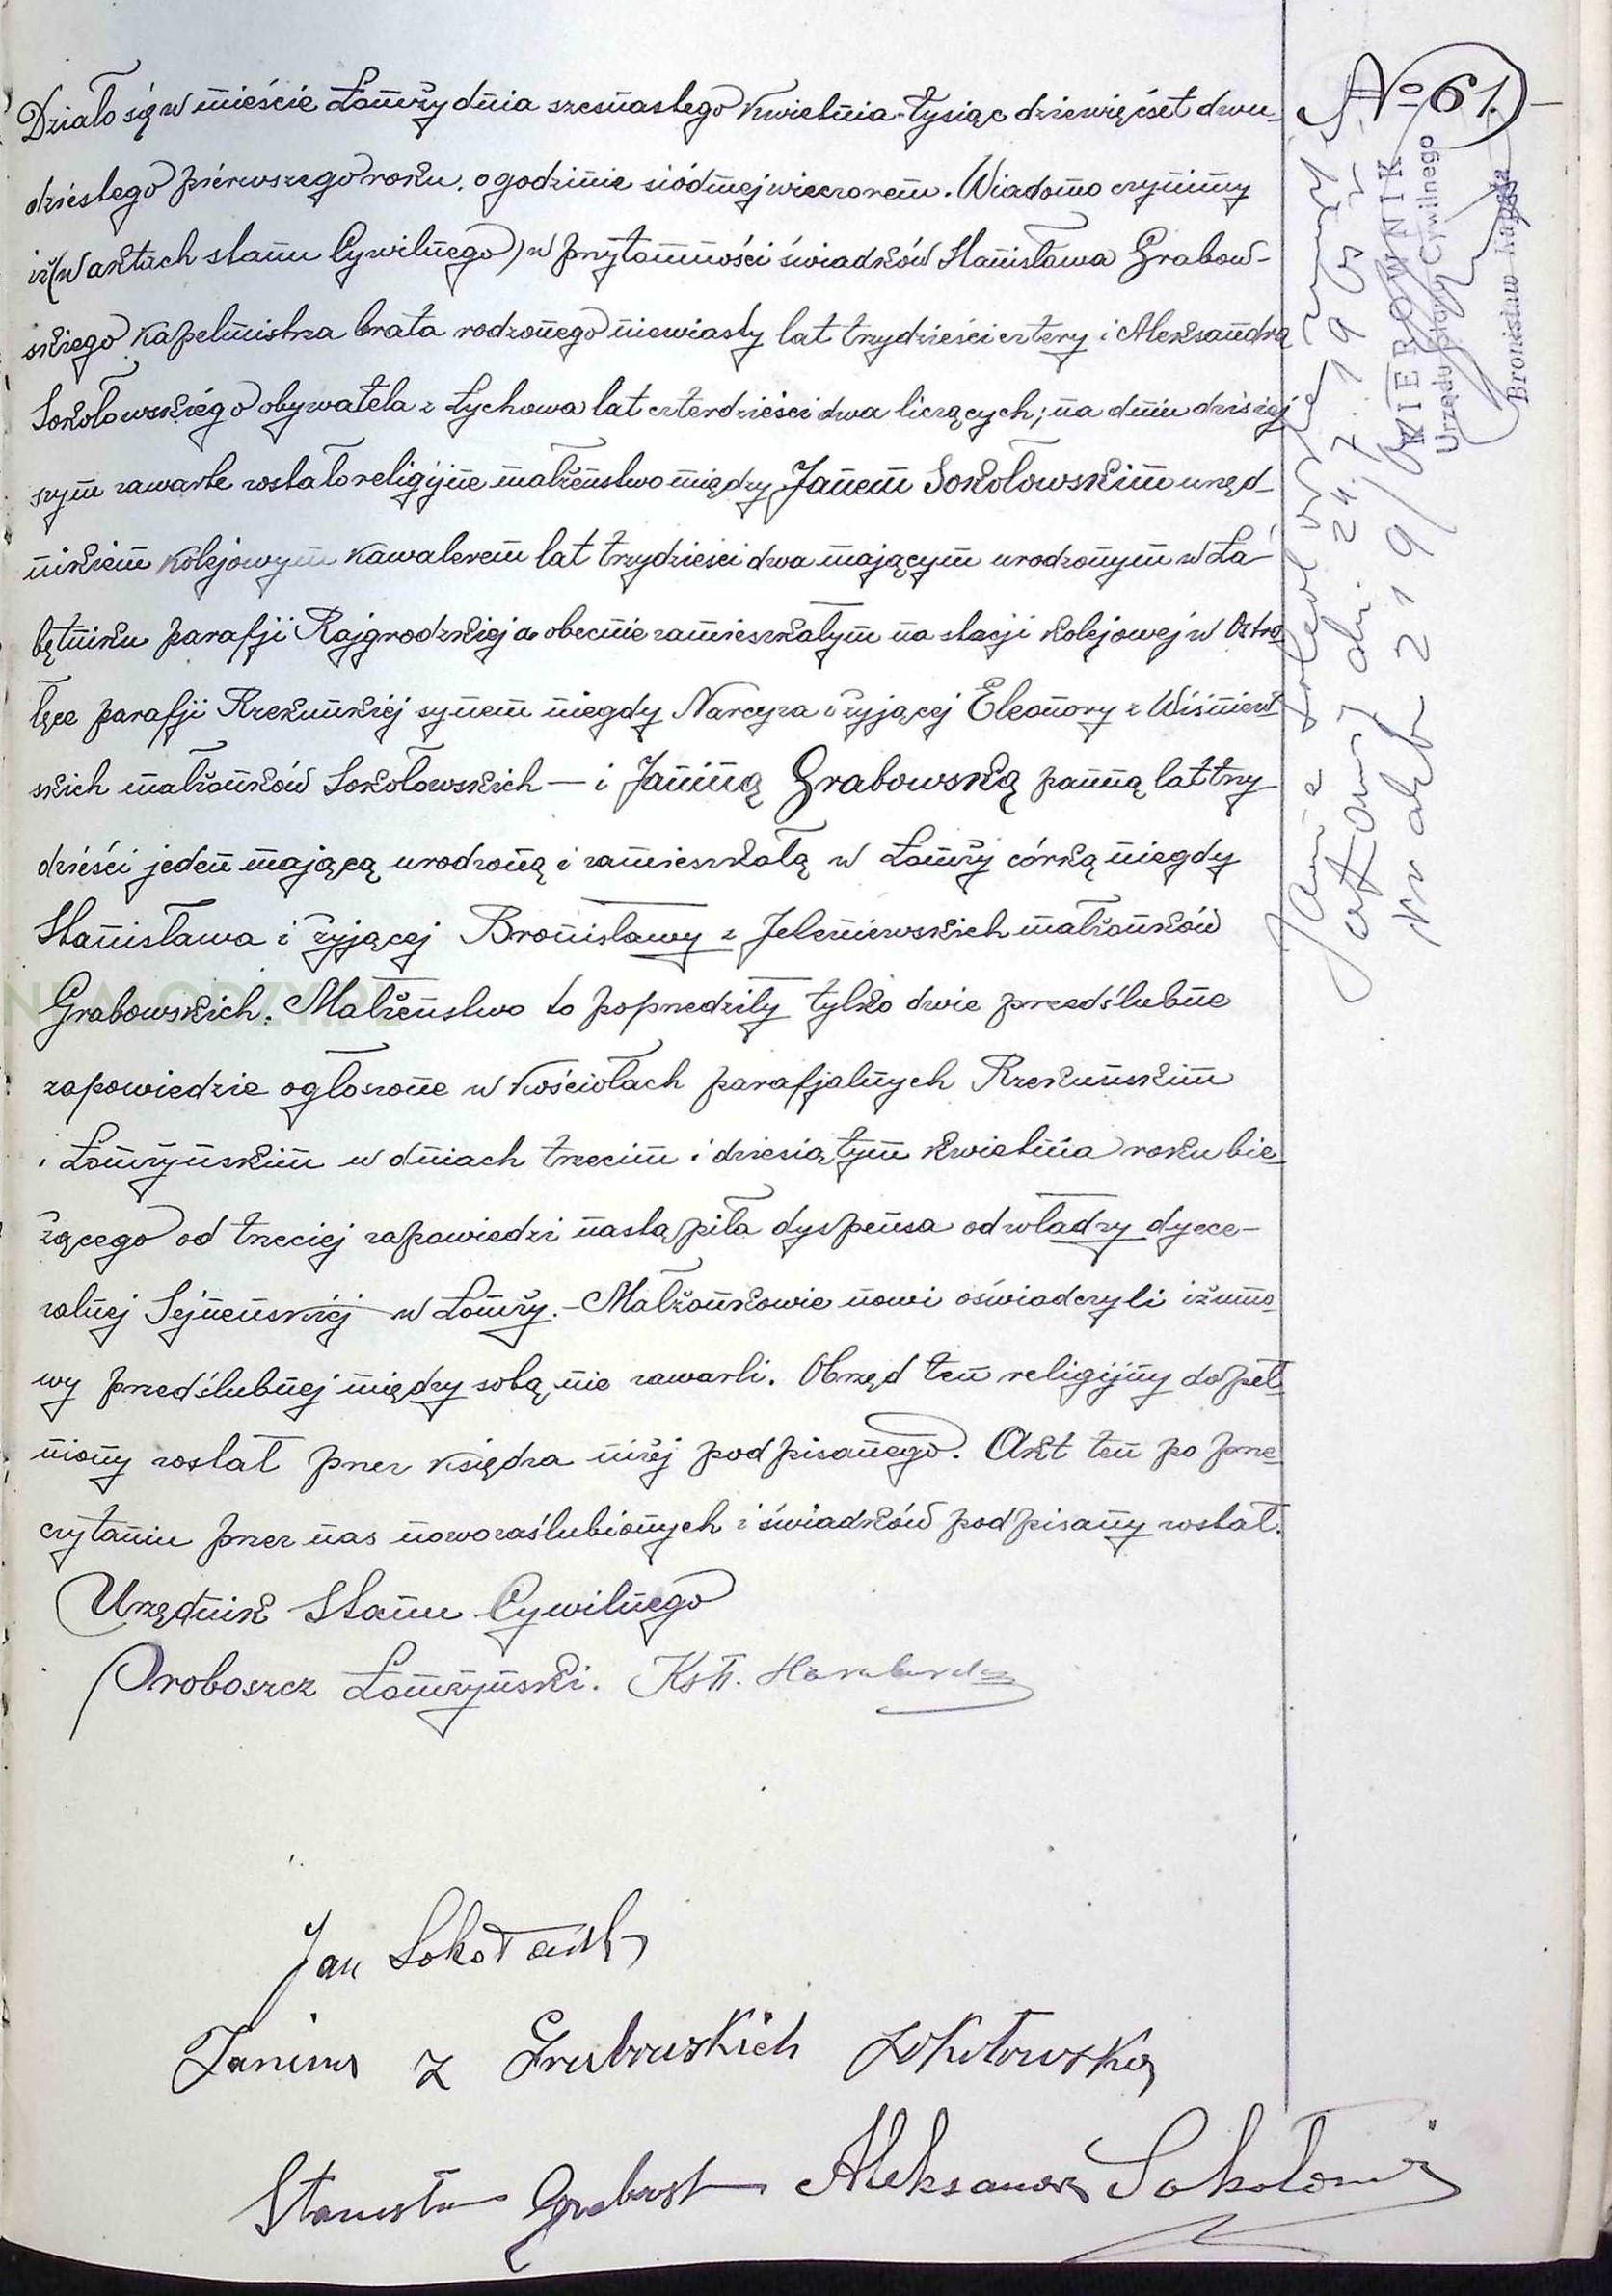 № 61.
Działo się w mieście Łomży dnia szesnastego Kwietnia tysiąc dziewięćset dwu-
dziestego pierwszego roku, o godzinie siódmej wieczorem. Wiadomo czynimy
iż (w aktach stanu Cywilnego) w przytomności świadków Stanisława Grabow-
skiego kapelmistrza brata rodzonego niewiasty lat trzydzieści cztery i Aleksandra
Sokołowskiego obywatela z Łychowa lat czterdzieści dwa liczących; na dniu dzisiej
szym zawarte zostało religijne małżeństwo między Janem Sokołowskim urzęd-
nikiem kolejowym kawalerem lat trzydzieści dwa mającym urodzonym w Ła-
będniku parafji Rajgrodzkiej a obecnie zamieszkałym na stacji kolejowej w Ostro-
łęce parafji Rzekuńskiej synem niegdy Narcyza i żyjącej Eleonory z Wiśniew-
skich małżonków Sokołowskich — i Janiną Grabowską panną lat trzy-
dzieści jeden mającą urodzoną i zamieszkałą w Łomży córką niegdy
Stanisława i żyjącej Bronisławy z Jeleniewskich małżonków
Grabowskich. Małżeństwo to poprzedziły tylko dwie przedślubne
zapowiedzie ogłoszone w kościołach parafjalnych Rzekuńskim
i Łomżyńskim w dniach trzecim i dziesiątym kwietnia roku bie-
żącego od trzeciej zapowiedzi nastąpiła dyspensa od władzy dyece-
zalnej Sejneńskiej w Łomży. – Małżonkowie nowi oświadczyli iż umo-
wy przedślubnej między sobą nie zawarli. Obrzęd ten religijny dopeł-
niony został przez księdza niżej podpisanego. Akt ten po prze-
czytaniu przez nas nowozaślubionych i świadków podpisany został.
Urzędnik Stanu Cywilnego
Proboszcz Łomżyński. Ks.
Jan Sokołowski
Janina z Grabowskich Sokołowska
Stanisław Grabowski Aleksander Sokołowski
Jan Sokołowski zmarł
24.7.1965 r.
Nr aktu 219/65
KIEROWNIK
Urzędu Stanu Cywilnego
Bronisław